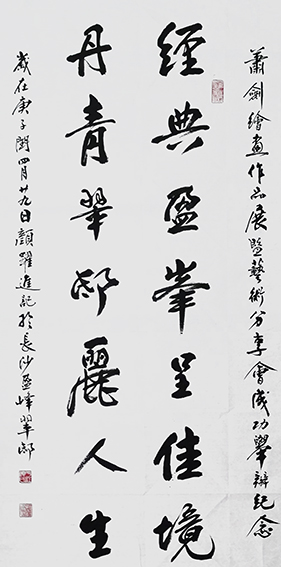 蕭劍繪畫作品展暨藝術分享會成功舉辦紀念
經典盈峯呈佳境
丹青翠邸麗人生
歲在庚子閏四月廿九日顏躍進記於長沙盈峰翠邸